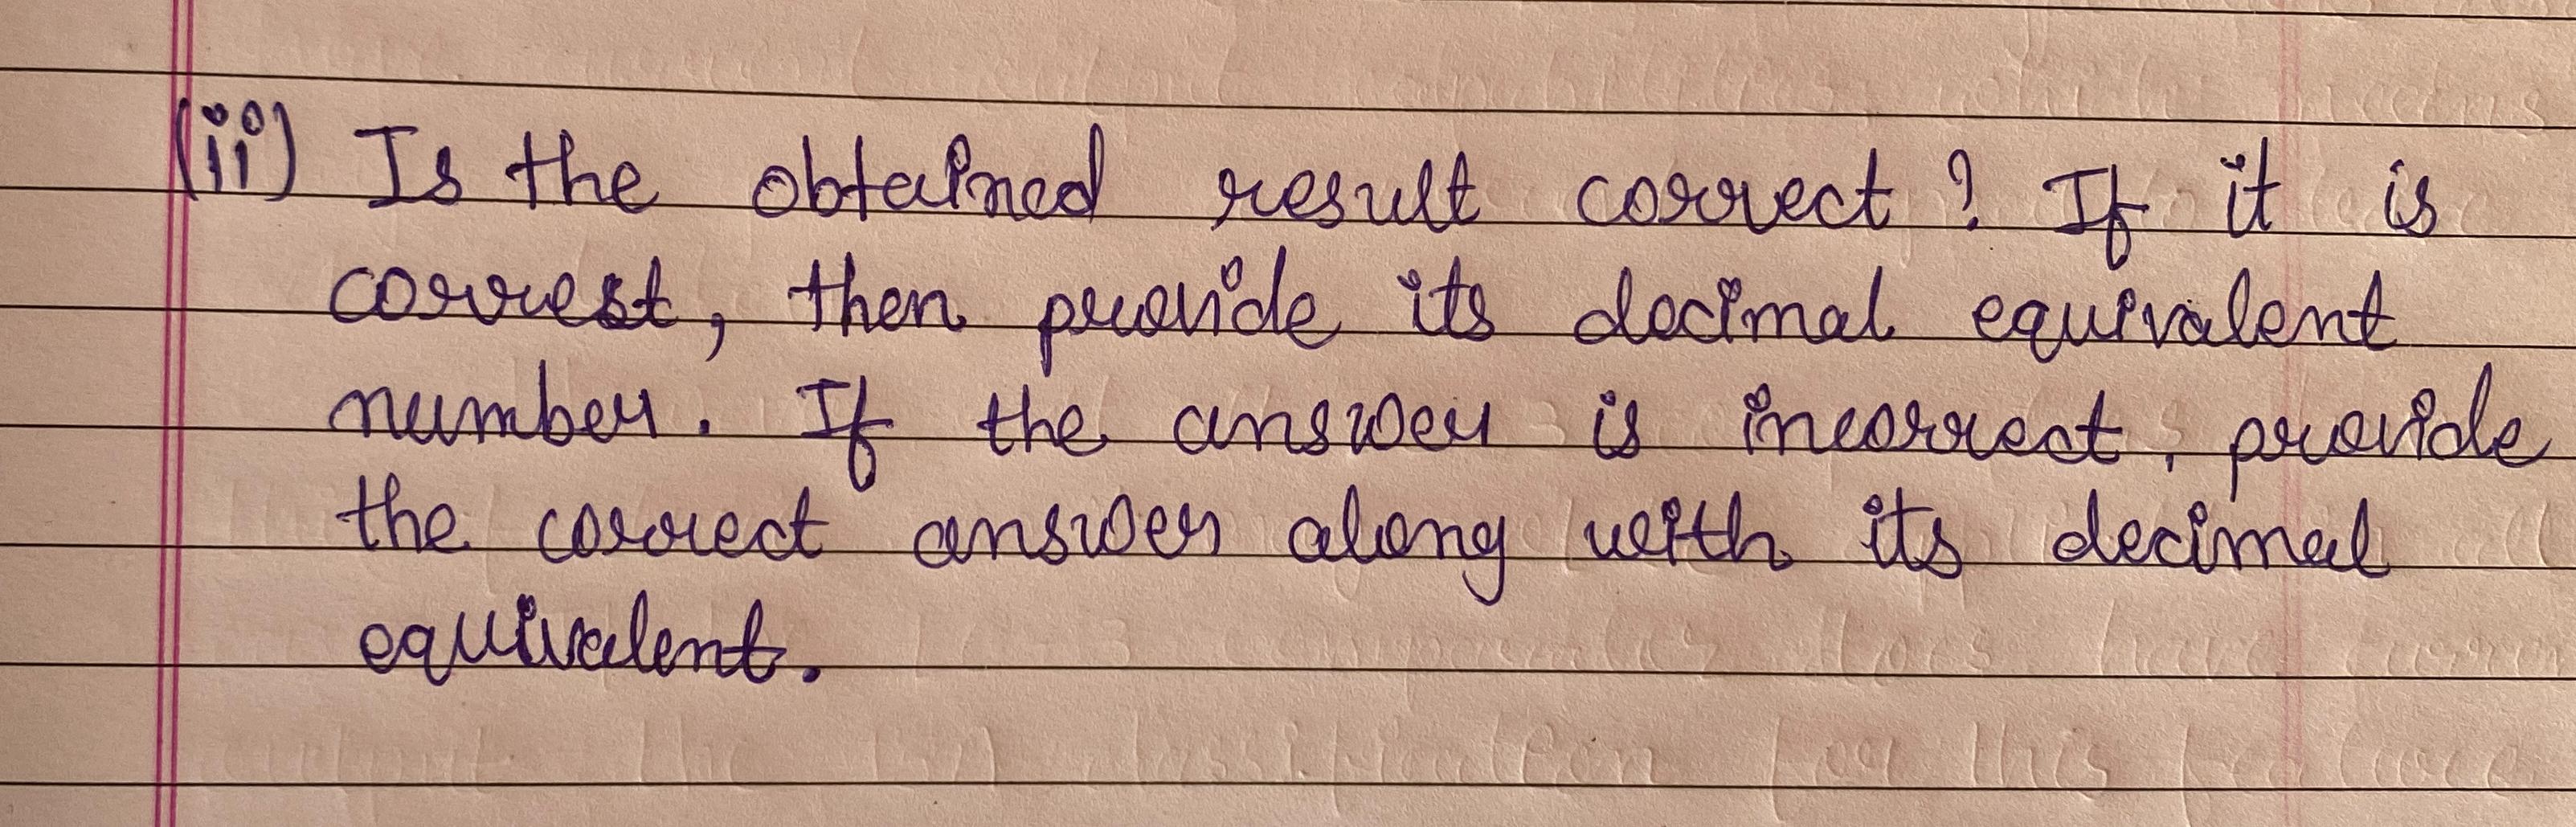 (ii) Is the obtained result correct? If it is
correct, then provide its decimal equivalent
number. If the answer is incorrect, provide
the correct answer along with its decimal
equivalent.